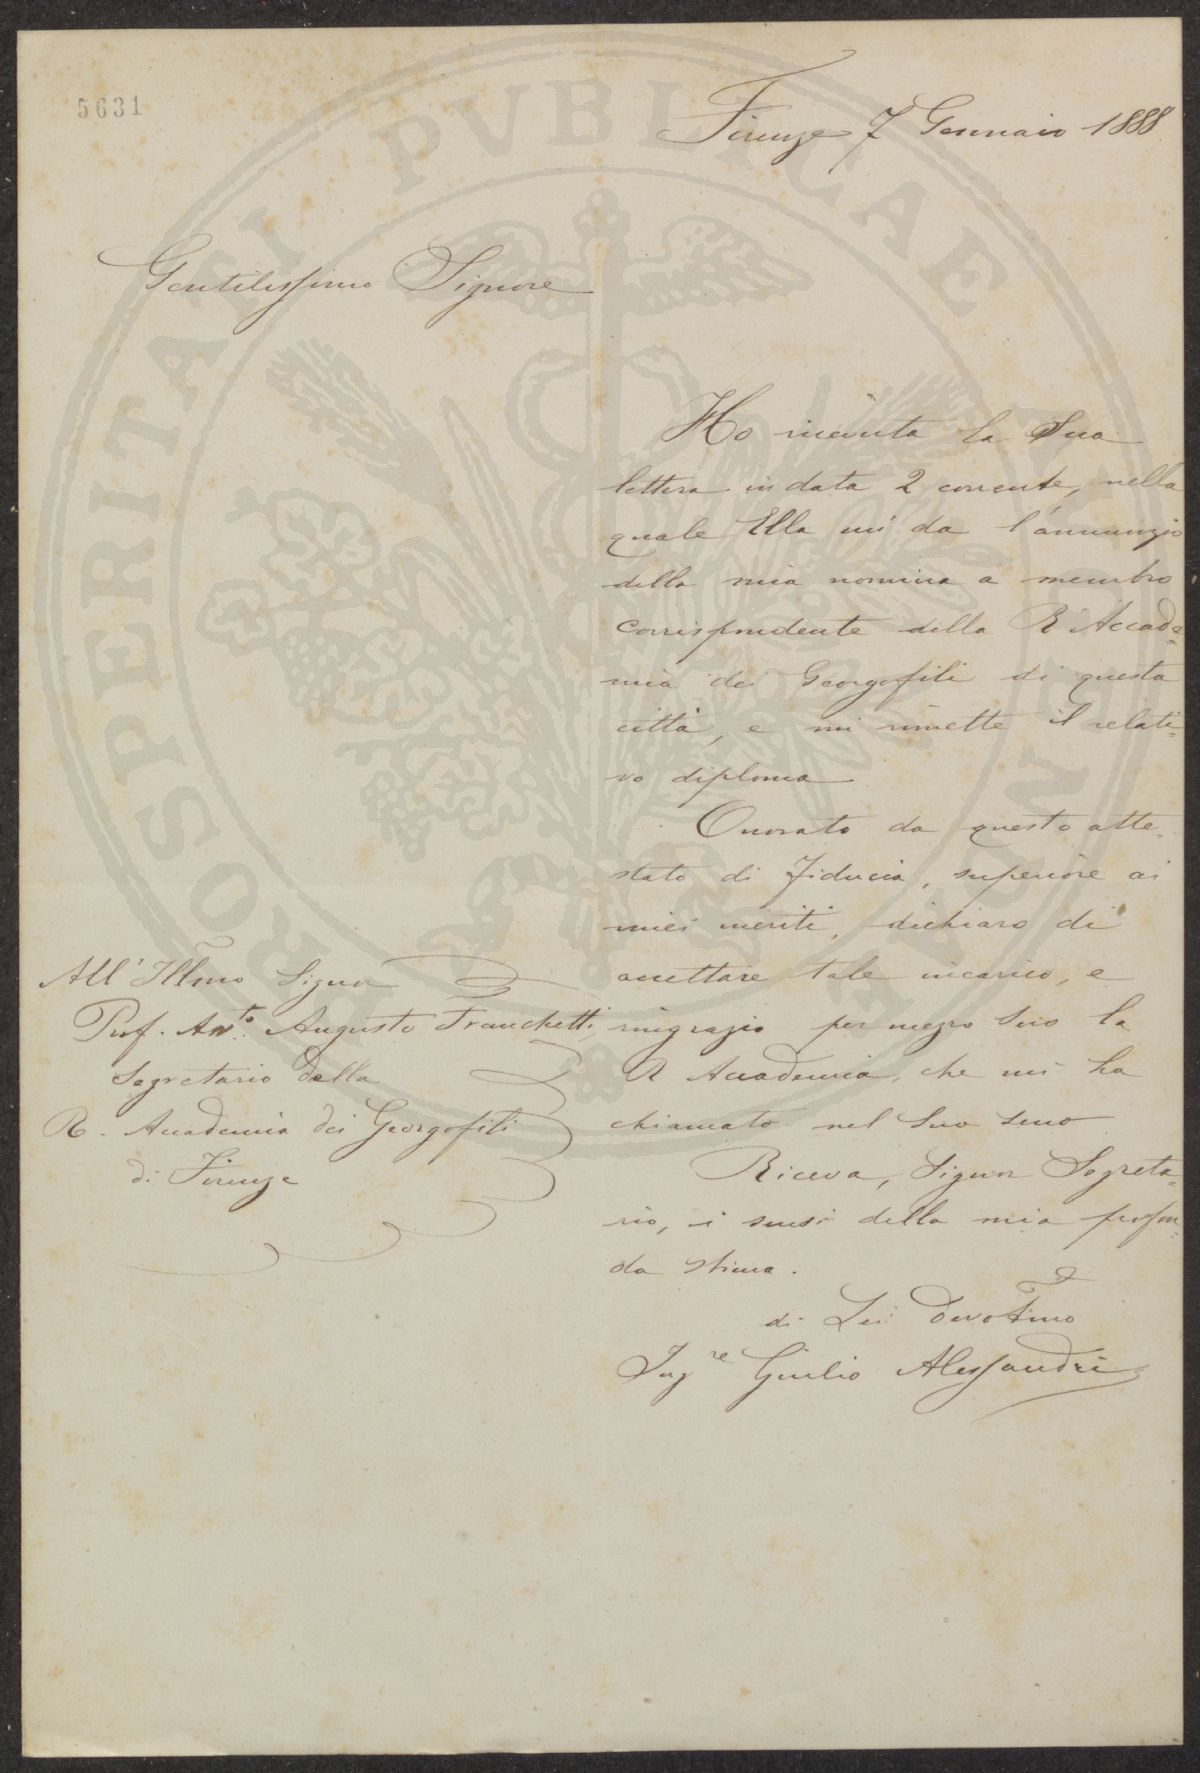 5631
Firenze 7 Gennaio 1888
Gentilissimo Signore
Ho ricevuta la Sua
lettera in data 2 corrente, nella
quale Ella mi da l'annunzio
della mia nomina a membro
corrispondente della R Accade=
mia dei Georgofili di questa
città, e mi rimette il relati=
vo diploma
Onorato da questo atte=
stato di fiducia, superiore ai
miei meriti, dichiaro di
accettare tale incarico, e
ringrazio per mezzo Suo la
R Accademia, che mi ha
chiamato nel Suo seno
Riceva, Signor Segreta=
rio, i sensi della mia profon=
da stima.
di Lei Devotmo
Ingre Giulio Alessandri
All'Illmo Signor
Prof. Avto. Augusto Franchetti,
Segretario della
R. Accademia dei Georgofili
di Firenze
PROSPERITATI PVBLICAE